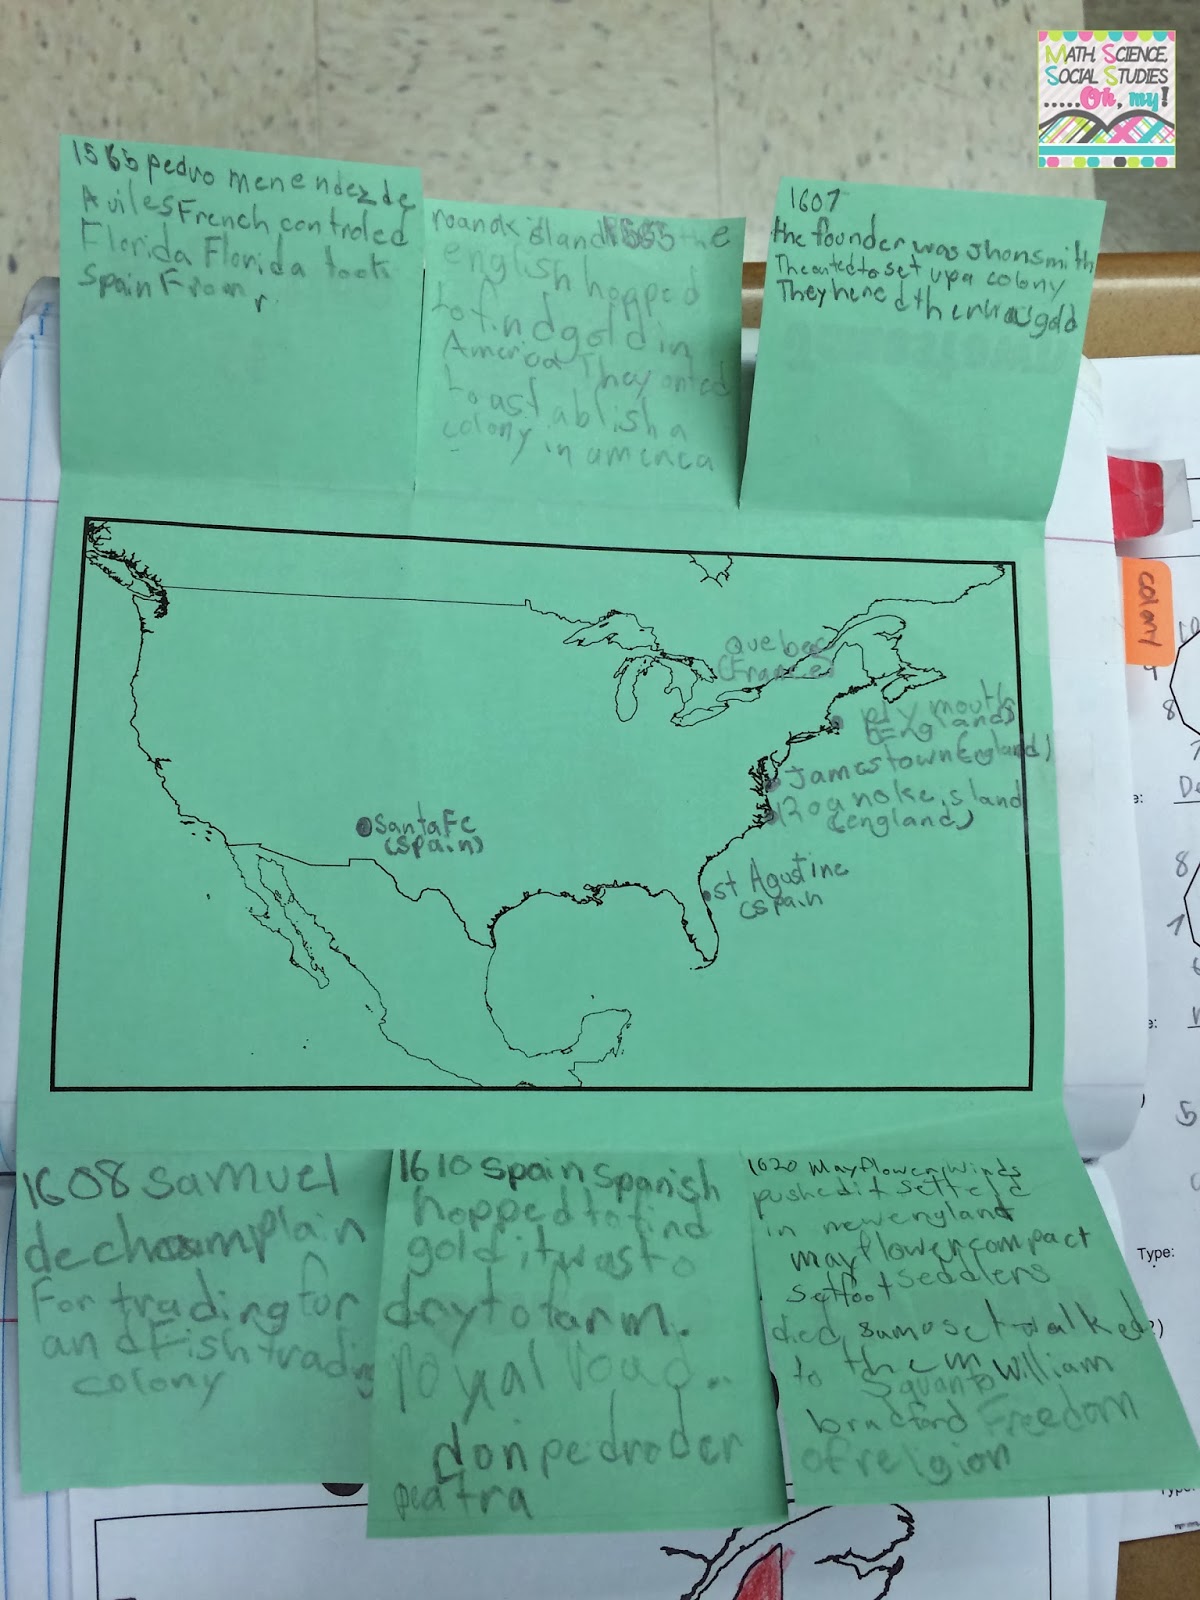 MATH, SCIENCE,
SOCIAL STUDIES
.....Oh, my!
1565 pedro menendez de
Aviles French controled
Florida Florida took
Spain From
roanok island 1585 the
english hopped
to find gold in
America They onted
to astablish a
colony in america
1607
the founder was Jhon smith
The onted to set up a colony
They gold
Quebec
(France)
plymouth
(England)
Jamestown (England)
Roanoke island
(england)
Santa Fe
(Spain)
st Agustine
(spain
colony
1608 Samuel
de champlain
For trading fur
and Fish trading
colony
1610 spain spanish
hopped to find
gold it was to
dry to farm.
royal road..
don pedro der
peatra
1620 Mayflower, winds
pushed it settele
in new england
mayflower compact
setfoot seddlers
died, samoset walked
to them William
Squanto
bradford Freedom
of religion
Type: